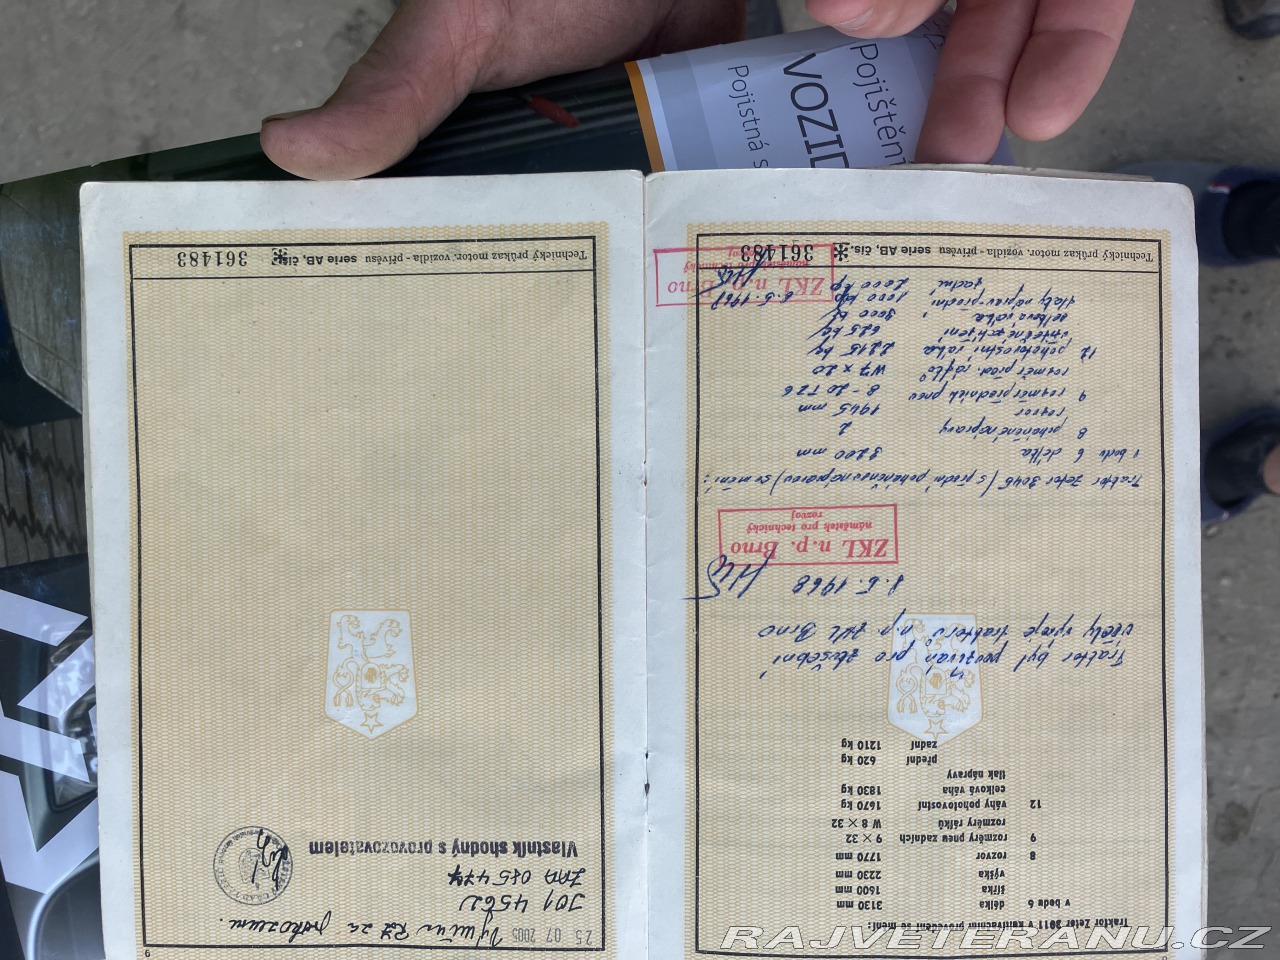 Pojištění
VOZID
Pojistná s
Traktor Zetor 2011 v kultivačním provedení se mění:
v bodu 6 délka 3130 mm
šířka 1600 mm
výška 2230 mm
8 rozvor 1770 mm
9 rozměry pneu zadních 9 × 32
rozměry ráfků W 8 × 32
12 váhy pohotovostní 1670 kg
celková váha 1830 kg
tlak nápravy
přední 620 kg
zadní 1210 kg
Traktor byl používán pro zkušební
účely vývoje traktorů n.p. ZKL Brno
8.5.1968
ZKL n. p. Brno
náměstek pro technický
rozvoj
Traktor Zetor 3045 /s přední poháněnou nápravou/ se mění:
v bodu 6 délka 3200 mm
8 poháněné nápravy 2
rozvor 1945 mm
9 rozměr předních pneu 8-20 T26
rozměr před. ráfků W7 x 20
12 pohotovostní váha 2215 kg
užitečné zatížení 625 kg
celková váha 3000 kg
tlaky náprav-přední 1000 kp
zadní 2000 kp
8.5.1968
ZKL n. p. Brno
náměstek pro technický
rozvoj
Technický průkaz motor. vozidla - přívěsu serie AB, čís. 361483
9
25 07 2005
Výměna RZ za
J01 4562
ZMA 085477
Vlastník shodný s provozovatelem
Technický průkaz motor. vozidla - přívěsu serie AB, čís. 361483
RAJVETERANU.CZ